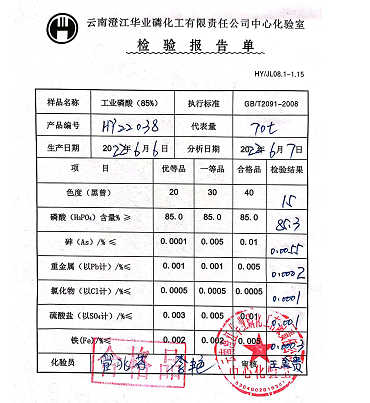 云南澄江华业磷化工有限责任公司中心化验室
检验报告单
HY/JL08.1-1.15
样品名称 工业磷酸（85%） 执行标准 GB/T2091-2008
产品编号 HY22038 代表量 70t
生产日期 2022年6月6日 分析日期 2022年6月7日
项 目 优等品 一等品 合格品 检验结果
色度（黑普） 20 30 40 15
磷酸（H₃PO₄）含量% ≥ 85.0 85.0 85.0 85.3
砷（As）/% ≤ 0.0001 0.005 0.01 0.0055
重金属（以Pb计）/%≤ 0.001 0.001 0.005 0.0002
氯化物（以Cl计）/%≤ 0.0005 0.0005 0.0005 0.0001
硫酸盐（以SO₄计）/%≤ 0.003 0.005 0.01 0.001
铁(Fe)/%≤ 0.002 0.002 0.005 0.0003
化验员 李艳 审核
合格品